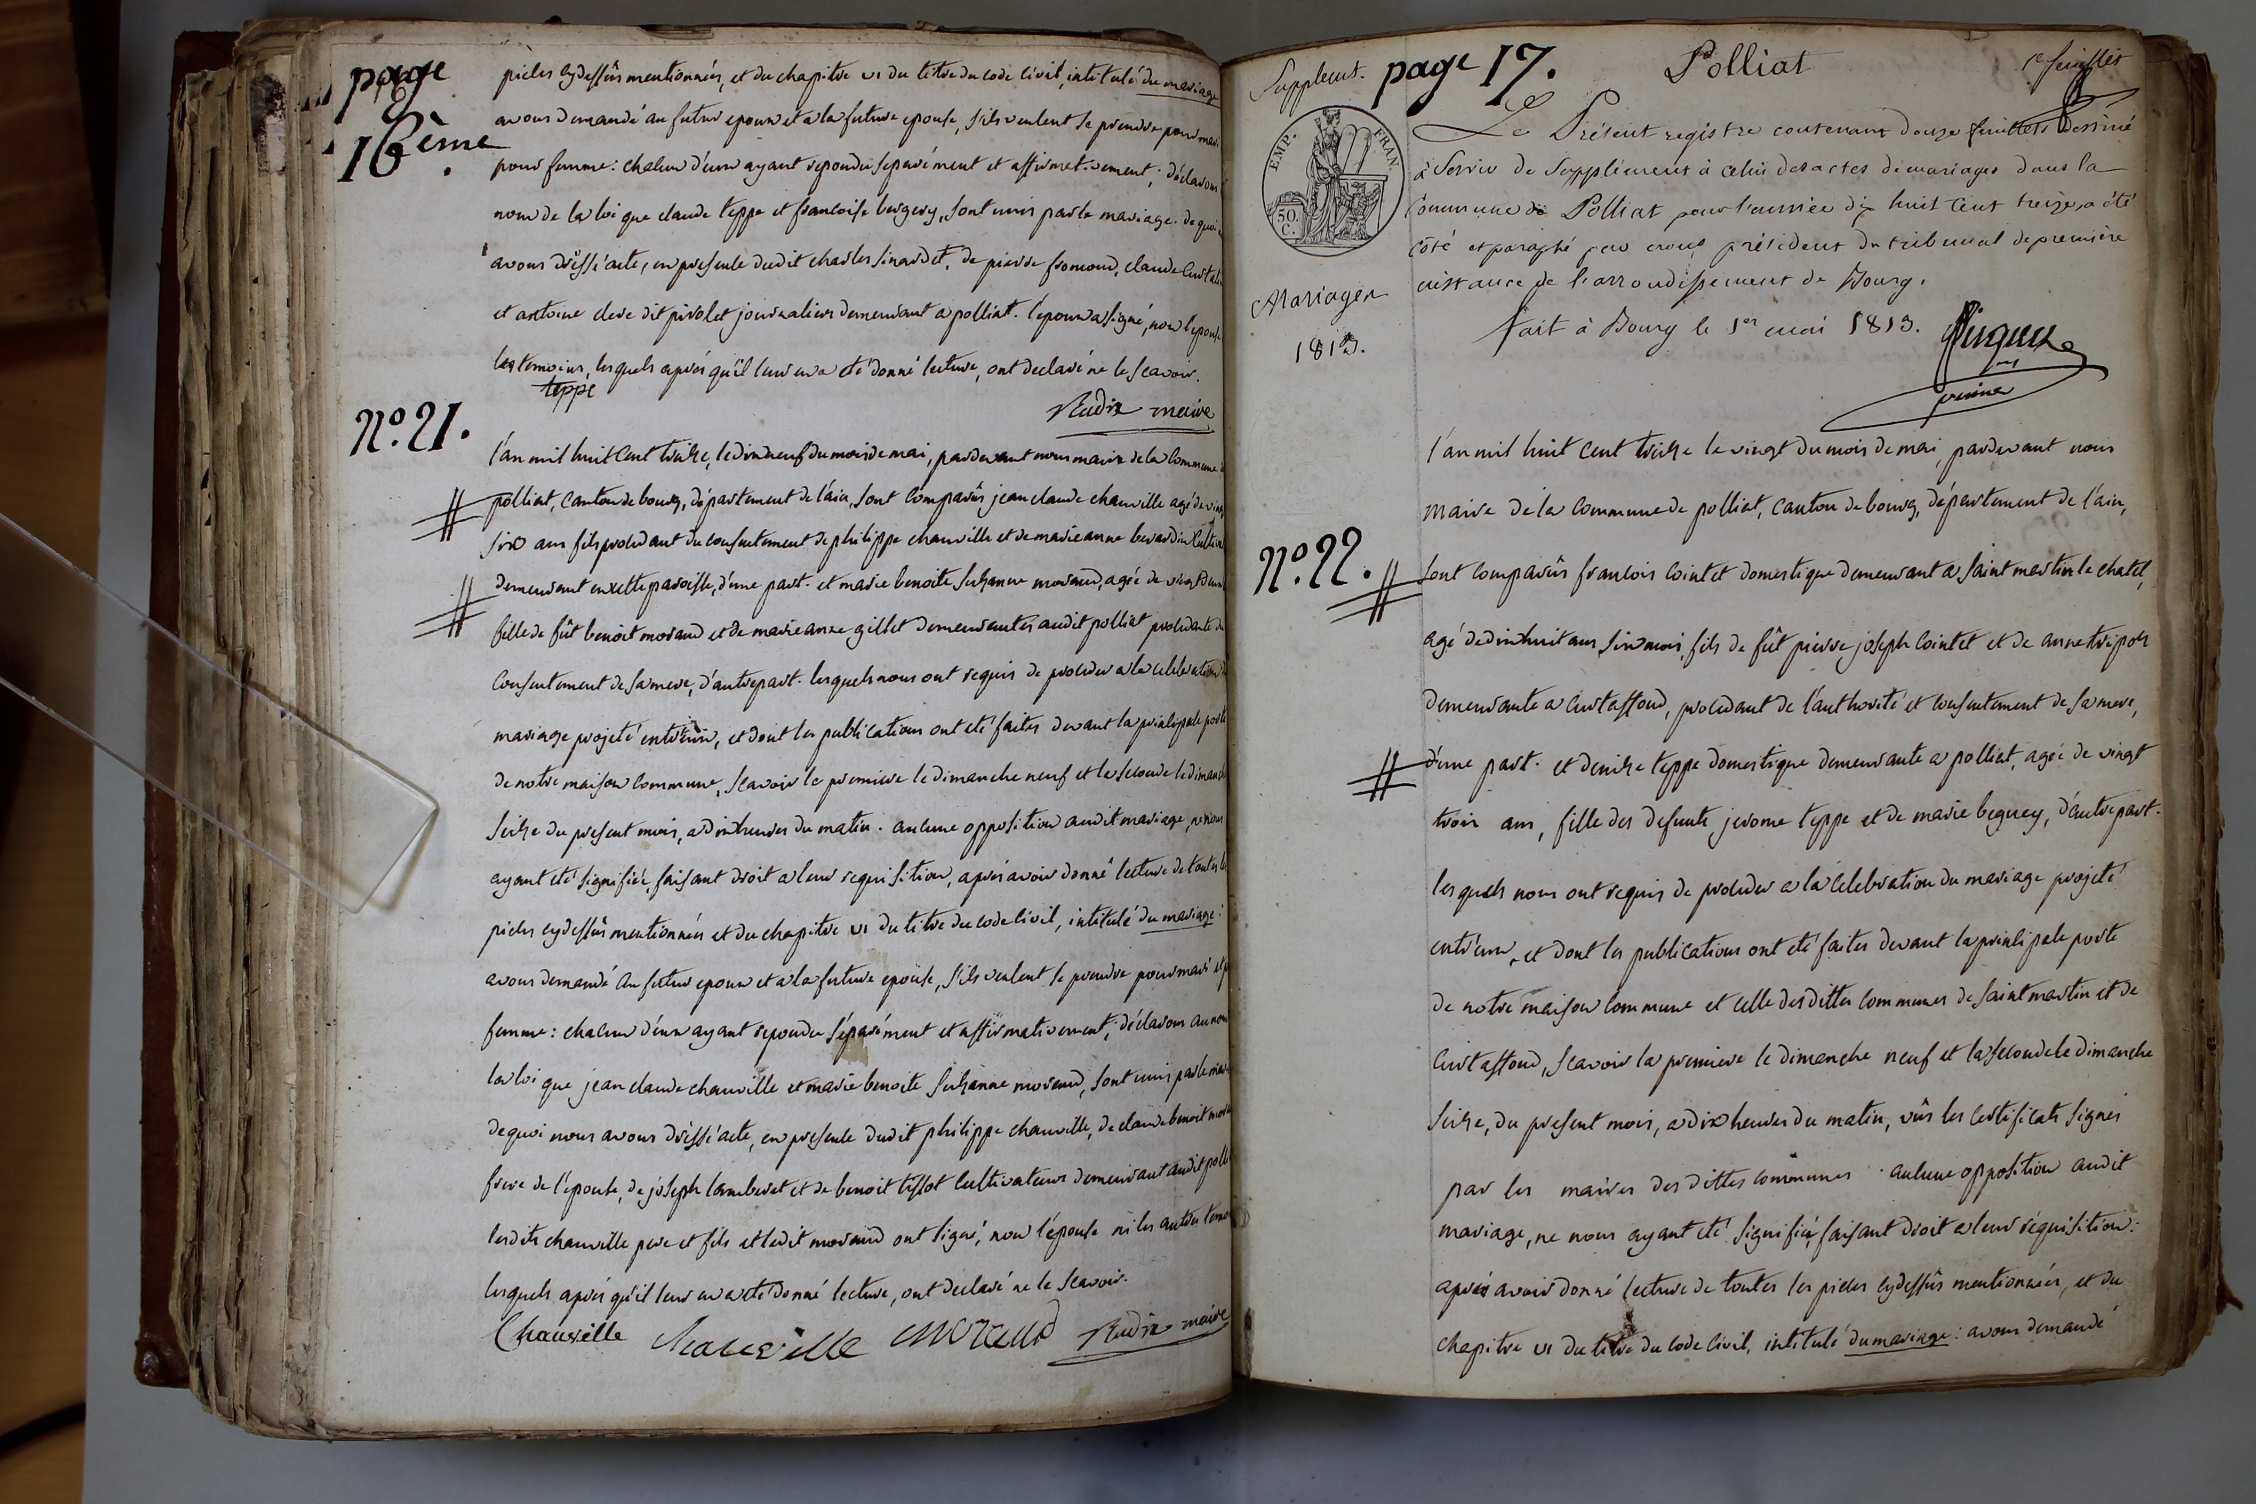 page
16ème.
pieces cydessûs mentionnées, et du chapitre VI du titre du code civil, intitulé du mariage
avons demandé au futur epoux et a la future epouse, s'ils veulent se prendre pour mari
pour femme: chacun d'eux ayant repondu separément et affirmativement; déclarons
nom de la loi que claude teppe et francoise bergery, sont unis par le mariage. de quoi
avons dréssé acte, en presence dudit charles sirardet, de pierre fromond, claude
et antoine clere dit pirolet journaliers demeurant a polliat. l'epoux a signé, non l'epouse
les temoins, lesquels aprés qu'il leur en a été donné lecture, ont declaré ne le scavoir.
teppe
Rudix maire
N.º 21.
l'an mil huit cent treize, le dixneuf du mois de mai, pardevant nous maire de la commune de
polliat, canton de bourg, département de l'ain, sont comparûs jean claude chauville agé de vingt
six ans fils procedant du consentement de philippe chauville et de marie anne berardin
demeurant en cette paroisse, d'une part. et marie benoite suzanne moraud, agée de vingt deux
fille de fût benoit moraud et de marie anne gillet demeurantes audit polliat procedante du
consentement de sa mere, d'autre part. lesquels nous ont requis de proceder a la celebration du
mariage projeté entr'eux, et dont les publications ont été faites devant la principale porte
de notre maison commune, scavoir la premiere le dimanche neuf et la seconde le dimanche
seize du present mois, a dix heures du matin. aucune opposition audit mariage, ne nous
ayant été signifiée, faisant droit a leur requisition, aprés avoir donné lecture de toutes les
pieces cydessûs mentionnées et du chapitre VI du titre du code civil, intitulé du mariage:
avons demandé au futur epoux et a la future epouse, s'ils veulent se prendre pour mari et p
femme: chacun d'eux ayant repondu séparément et affirmativement; déclarons au nom
la loi que jean claude chauville et marie benoite suzanne moraud, sont unis par le
de quoi nous avons dréssé acte, en presence dudit philippe chauville, de claude benoit
frere de l'epouse, de joseph lamberet et de benoit tissot cultivateurs demeurant audit polliat
lesdits chauville pere et fils et ledit moraud ont signé, non l'epouse ni les autres
lesquels aprés qu'il leur en a été donné lecture, ont declaré ne le scavoir.
Chauville Chauville moraud Rudix maire
Supplement. page 17. Polliat 1er feuillet
Le Présent registre contenant douze feuillets destiné
à Servir de Supplément à celui des actes de mariages dans la
Commune de Polliat pour l'année dix huit Cent treize, a été
côté et paraphé par nous président du tribunal de première
instance de l'arrondissement de Bourg.
Fait à Bourg le 1er mai 1813.
EMP. FRAN.
50.
C.
Mariages
1813.
l'an mil huit cent treize le vingt du mois de mai, pardevant nous
maire de la commune de polliat, canton de bourg, département de l'ain,
N.º 22.
sont comparûs francois cointet domestique demeurant a saint martin le chatel,
agé de dixhuit ans, six mois, fils de fût pierre joseph cointet et de anne tripoz
demeurante a curtafond, procedant de l'authorité et consentement de sa mere,
d'une part. et denize teppe domestique demeurante a polliat, agée de vingt
trois ans, fille des defunts jerome teppe et de marie beguey, d'autre part.
lesquels nous ont requis de proceder a la celebration du mariage projeté
entr'eux, et dont les publications ont été faites devant la principale porte
de notre maison commune et celle des dittes communes de saint martin et de
curtafond, scavoir la premiere le dimanche neuf et la seconde le dimanche
seize, du present mois, a dix heures du matin, vûs les certificats signés
par les maires des dittes communes. aucune opposition audit
mariage, ne nous ayant été signifiée, faisant droit a leur réquisition:
aprés avoir donné lecture de toutes les pieces cydessûs mentionnées, et du
chapitre VI du titre du code civil, intitulé du mariage: avons demandé